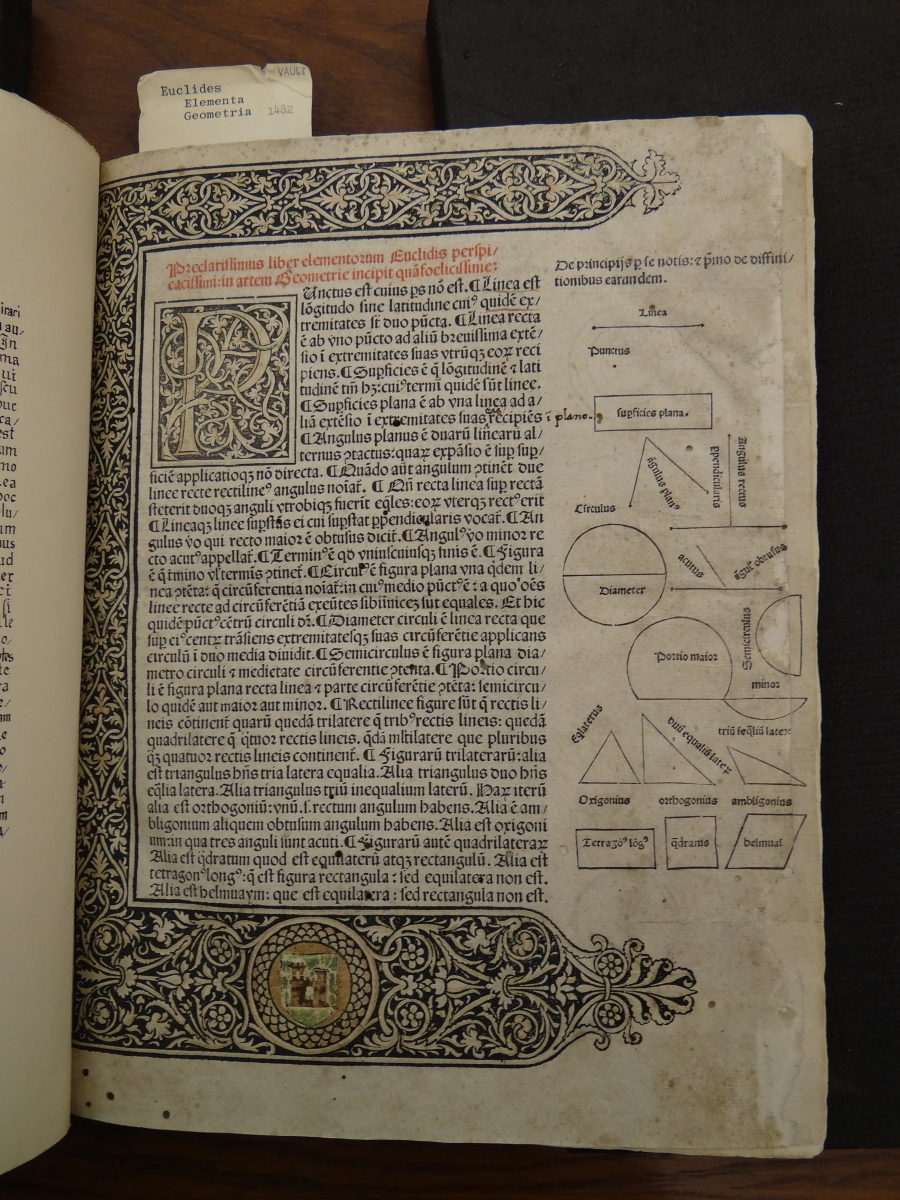 VAULT
Euclides
Elementa
Geometria 1482
Preclarissimus liber elementorum Euclidis perspi/
cacissimi: in artem Geometrie incipit quāfoelicissime:
PUnctus est cuius ps nō est. ¶ Linea est
lōgitudo sine latitudine cuiꝰ quidē ex/
tremitates st duo pūcta. ¶ Linea recta
ē ab vno pūcto ad aliū breuissima extē/
sio ī extremitates suas vtrūqꝫ eoꝝ reci
piens. ¶ Supficies ē q̄ lōgitudinē ⁊ lati
tudinē tm̄ hꝫ: cuiꝰ termī quidē sūt linee.
¶ Supficies plana ē ab vna linea ad a/
liā extēsio ī extremitates suas recipiēs
¶ Angulus planus ē duarū linearū al/
ternus ꝯtactus: quaꝝ expāsio ē sup sup/
ficiē applicatioqꝫ nō directa. ¶ Quādo aūt angulum ꝯtinēt due
linee recte rectilineꝰ angulus noīat̄. ¶ Qn̄ recta linea sup rectā
steterit duoqꝫ anguli vtrobiqꝫ fuerīt eq̄les: eoꝝ vterqꝫ rectꝰ erit
¶ Lineaqꝫ linee supstās ei cui supstat ppendicularis vocat̄. ¶ An
gulus vo qui recto maior ē obtusus dicit̄. ¶ Angulꝰ vo minor re
cto acutꝰ appellat̄. ¶ Terminꝰ ē qd̄ vniuscuiusqꝫ finis ē. ¶ Figura
ē q̄ tmino vl̓ termīs ꝯtinet̄. ¶ Circulꝰ ē figura plana vna q̄dem li/
nea ꝯtēta: q̄ circūferentia noīat̄: in cuiꝰ medio pūctꝰ ē: a quo oēs
linee recte ad circūferētiā exeūtes sibiinuicē sūt equales. Et hic
quidē pūctꝰ cētrū circuli dr̄. ¶ Diameter circuli ē linea recta que
sup eiꝰ centꝝ trāsiens extremitatesqꝫ suas circūferētie applicans
circulū ī duo media diuidit. ¶ Semicirculus ē figura plana dia/
metro circuli ⁊ medietate circūferentie ꝯtenta. ¶ Portio circu/
li ē figura plana recta linea ⁊ parte circūferētie ꝯtēta: semicircu/
lo quidē aut maior aut minor. ¶ Rectilinee figure sūt q̄ rectis li/
neis cōtinent̄ quarū quedā trilatere q̄ tribꝰ rectis lineis: quedā
quadrilatere q̄ q̄tuor rectis lineis. qd̄ā mltilatere que pluribus
qꝫ quatuor rectis lineis continent̄. ¶ Figurarū trilaterarū: alia
est triangulus hn̄s tria latera equalia. Alia triangulus duo hn̄s
eq̄lia latera. Alia triangulus triū inequalium laterū. Haꝝ iterū
alia est orthogoniū: vnū .s. rectum angulum habens. Alia ē am/
bligonium aliquem obtusum angulum habens. Alia est oxigoni
um: in qua tres anguli sunt acuti. ¶ Figurarū autē quadrilateraꝝ
Alia est q̄dratum quod est equilaterū atqꝫ rectangulū. Alia est
tetragonꝰ longꝰ: q̄ est figura rectangula: sed equilatera non est.
Alia est helmuaym: que est equilatera: sed rectangula non est.
De principijs p se notis: ⁊ pmo de diffini/
tionibus earundem.
Linea
Punctus
ī plano.
supficies plana.
āgulus planꝰ
ppendicularis
angulus rectus
Circulus
Diameter
acutus
āgulꝰ obtusus
Portio maior
Semicirculus
minor
Eq̄laterus
duū equaliū lateꝝ
triū īeq̄liū lateꝝ
Oxigonius orthogonius ambligonius
Tetragōꝰ lōgꝰ
q̄dratus
helmuaȳ